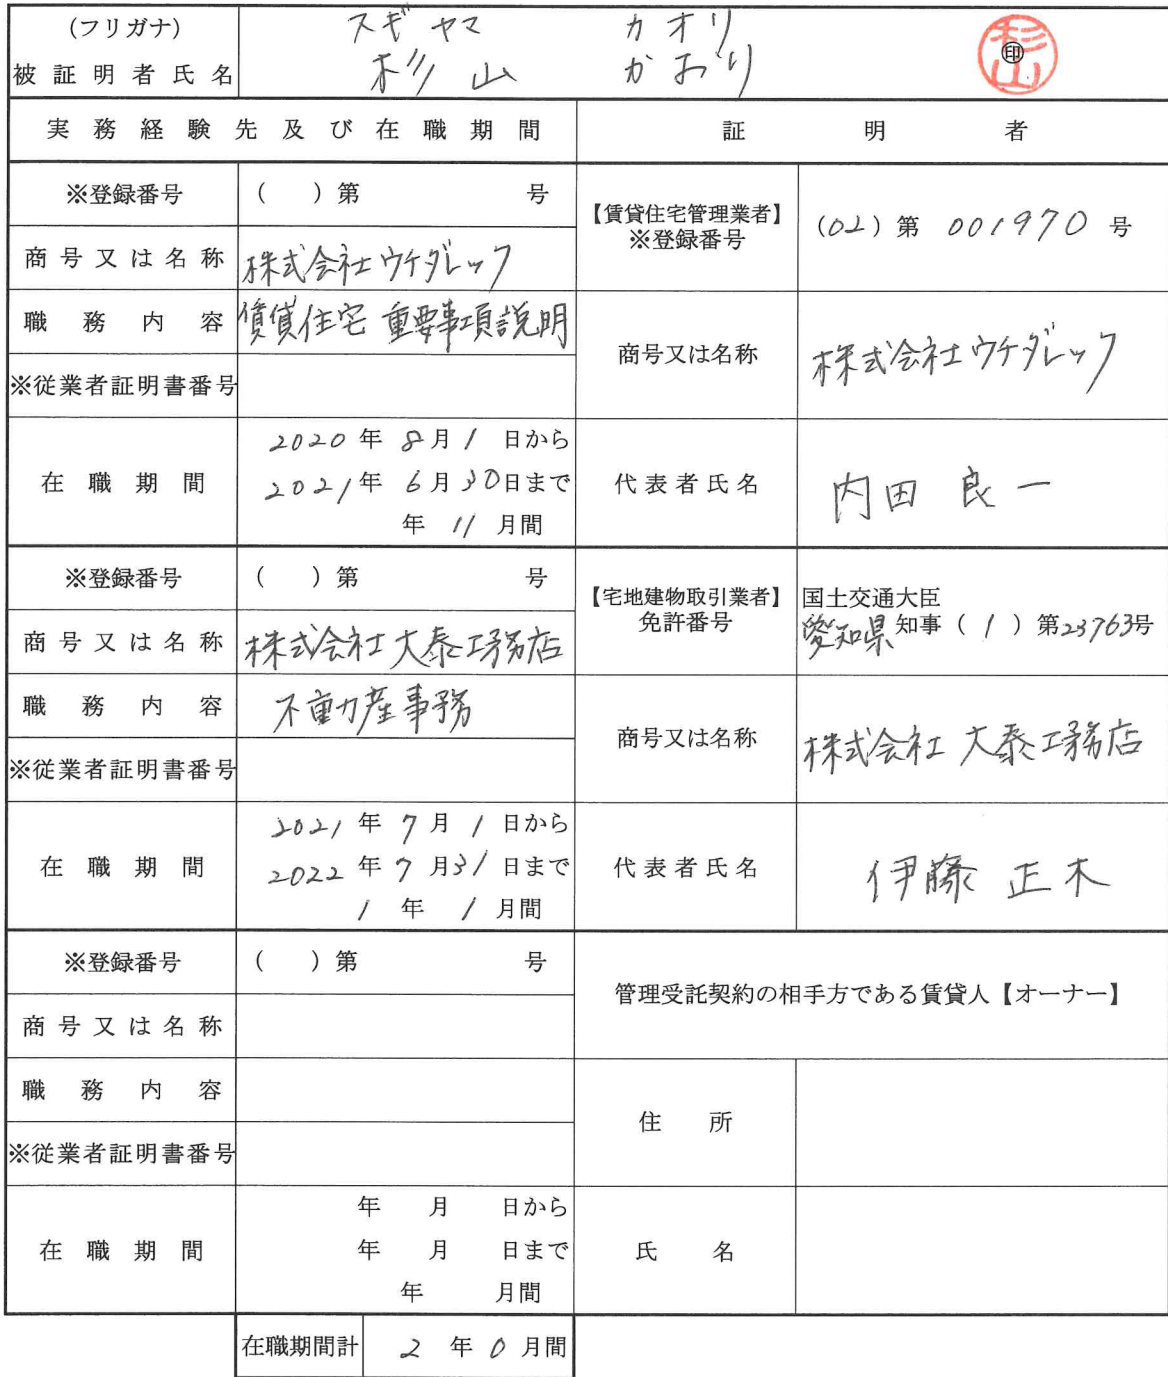 (フリガナ) スギヤマ カオリ
被証明者氏名 杉山 かおり ㊞ 杉山
実務経験先及び在職期間 証明者
※登録番号 ( )第 号
【賃貸住宅管理業者】
※登録番号 (02)第 001970 号
商号又は名称 株式会社ウケダレック
職務内容 賃貸住宅 重要事項説明
商号又は名称 株式会社ウケダレック
※従業者証明書番号
在職期間
2020年 8月 1 日から
2021年 6月 30日まで
年 11 月間
代表者氏名 内田 良一
※登録番号 ( )第 号
【宅地建物取引業者】
免許番号
国土交通大臣
愛知県 知事 ( 1 ) 第23763号
商号又は名称 株式会社大泰工務店
職務内容 不動産事務
商号又は名称 株式会社 大泰工務店
※従業者証明書番号
在職期間
2021 年 7 月 1 日から
2022 年 7 月31 日まで
1 年 1 月間
代表者氏名 伊藤 正木
※登録番号 ( )第 号
管理受託契約の相手方である賃貸人【オーナー】
商号又は名称
職務内容
住所
※従業者証明書番号
在職期間
年 月 日から
年 月 日まで
年 月間
氏名
在職期間計 2 年 0 月間